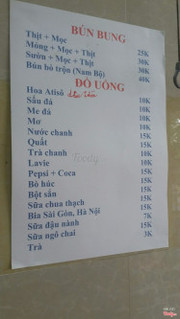 BÚN BUNG
Thịt + Mọc 25K
Móng + Mọc + Thịt 30K
Sườn + Mọc + Thịt 30K
Bún bò trộn (Nam Bộ) 40K
ĐỒ UỐNG
Hoa Atisô
Sấu đá 10K
Me đá 10K
Mơ 10K
Nước chanh 10K
Quất 10K
Trà chanh 10K
Lavie 10K
Pepsi + Coca 15K
Bò húc 15K
Bột sắn 15K
Sữa chua thạch 15K
Bia Sài Gòn, Hà Nội 15K
Sữa đậu nành 7K
Sữa ngô chai 15K
Trà 3K
Foody